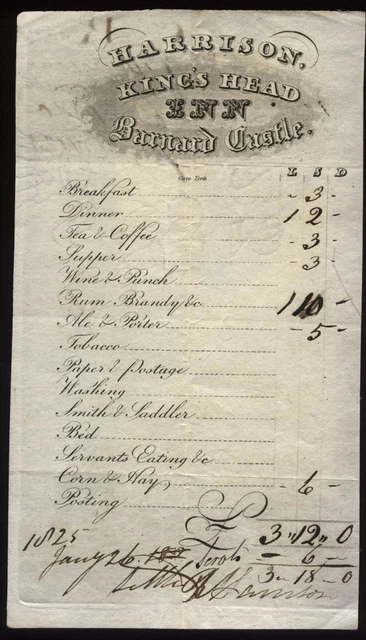 HARRISON,
KING'S HEAD
INN
Barnard Castle.
L S D
Breakfast - 3 -
Dinner 1 2 -
Tea & Coffee - 3 -
Supper - 3 -
Wine & Punch
Rum Brandy &c 1 10 -
Ale & Porter - 5 -
Tobacco
Paper & Postage
Washing
Smith & Saddler
Bed
Servants Eating &c
Corn & Hay - 6 -
Posting
£ 3 " 12 " 0
1825
Jany 26 - 6 -
3 - 18 - 0
Settled Harrison